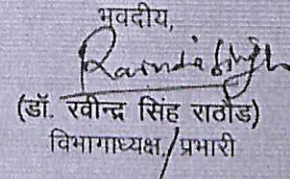 भवदीय,
Ravindra Singh
(डॉ. रवीन्द्र सिंह राठौड)
विभागाध्यक्ष/प्रभारी